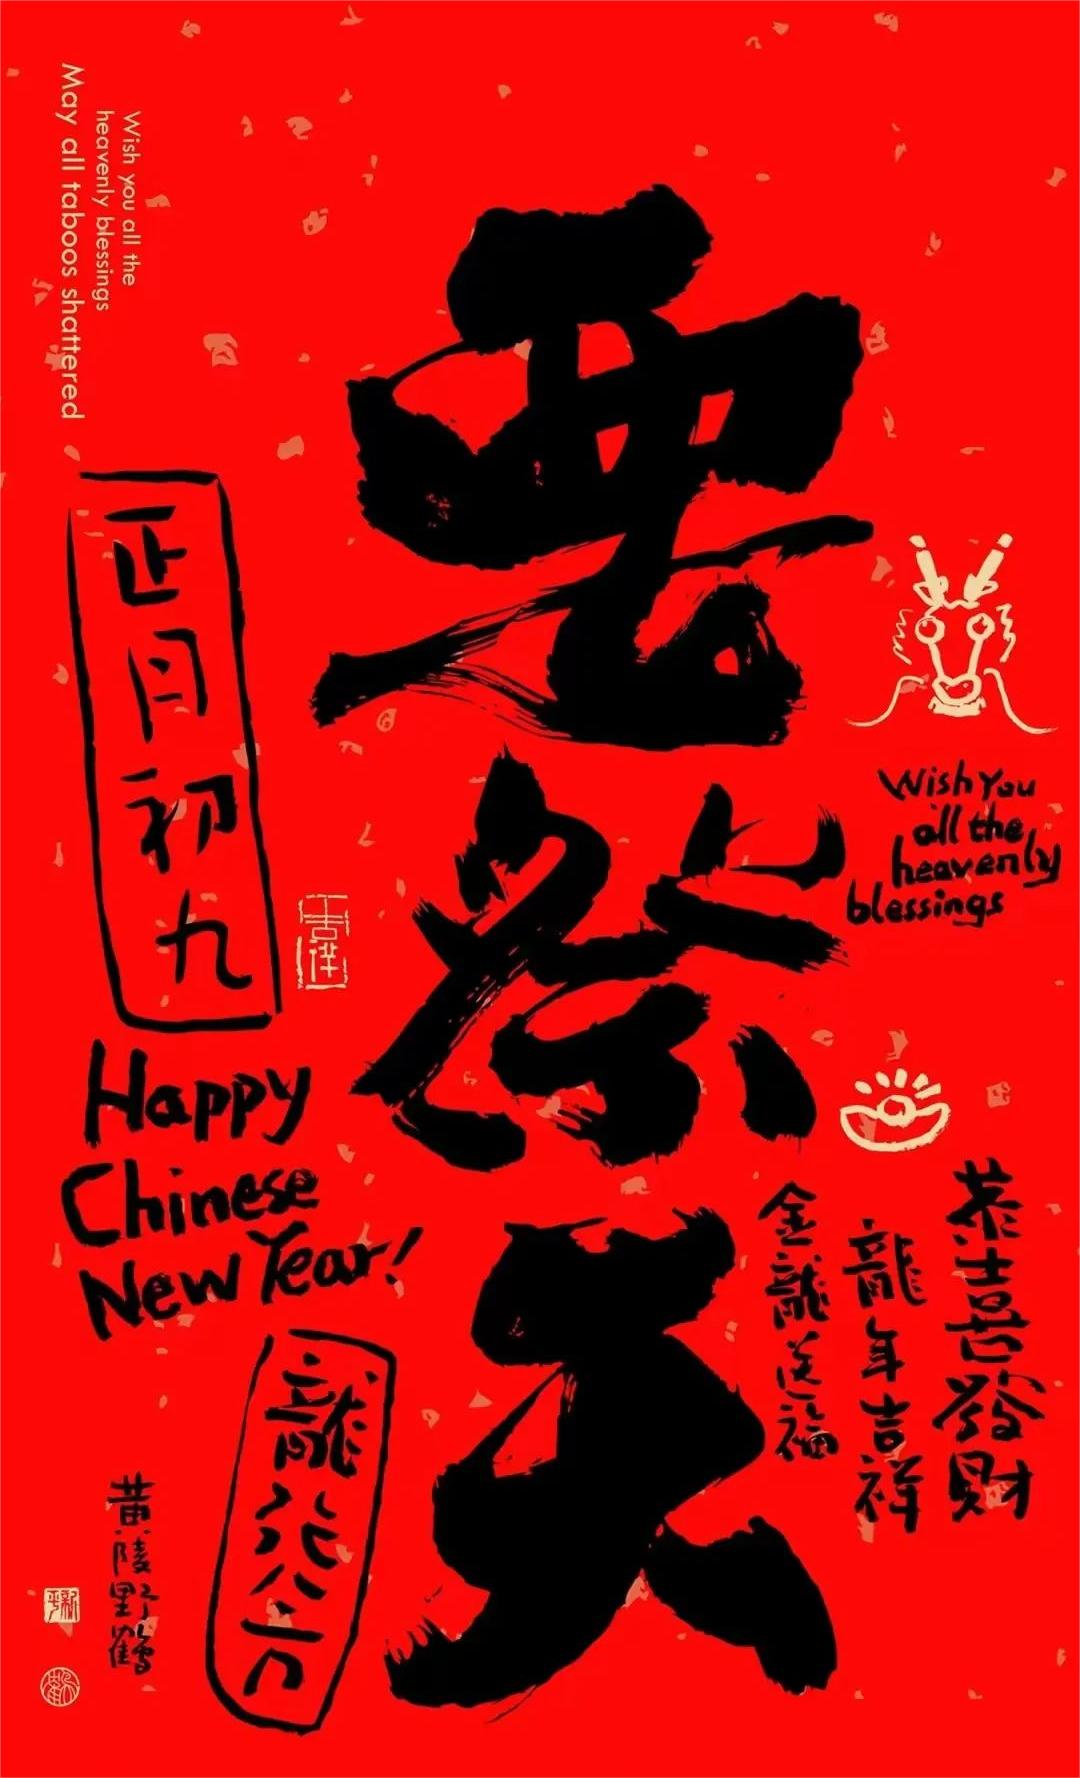 Wish you all the
heavenly blessings
May all taboos shattered
要祭天
正月初九
Wish You
all the
heavenly
blessings
Happy
Chinese
New Year!
恭喜發財
龍年吉祥
金龍送福
龍行八方
黄陵野鶴